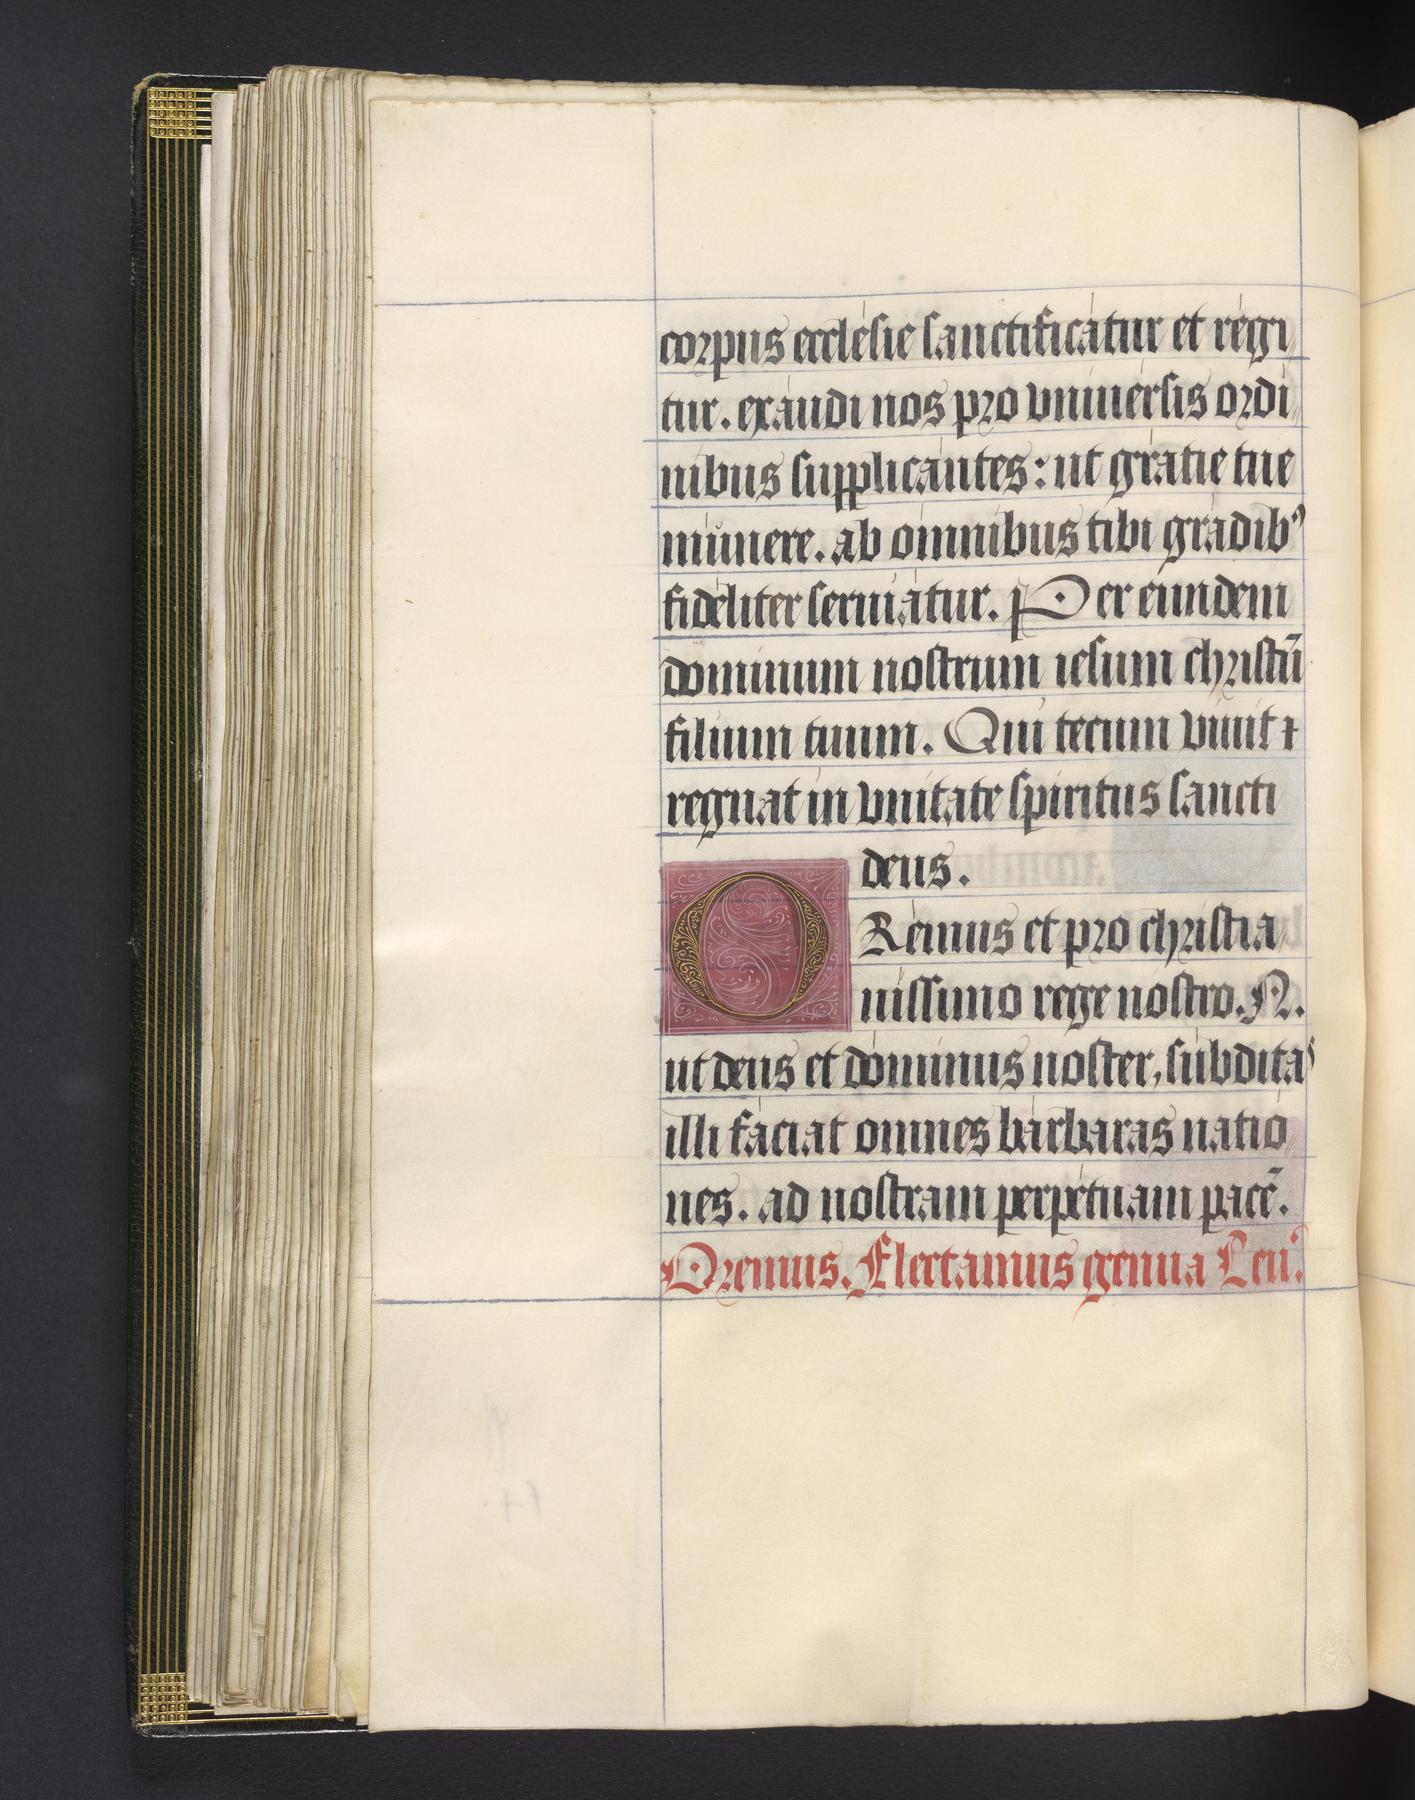 corpus ecclésie sanctificátur et régi
tur. exáudi nos pro vniuérsis ordi
nibus supplicántes: ut grátie tue
múnere. ab ómnibus tibi grádibꝰ
fidéliter seruiátur. Per eúndem
dominum nostrum iesum christū
filium tuum. Qui tecum viuit ⁊
regnat in vnitate spiritus sancti
deus.
ORémus et pro christia
níssimo rege nostro. N.
ut deus et dóminus noster, súbditas
illi fáciat omnes bárbaras natió
nes. ad nostram perpétuam pacē.
Oremus. Flectamus genua Leuꝰ.